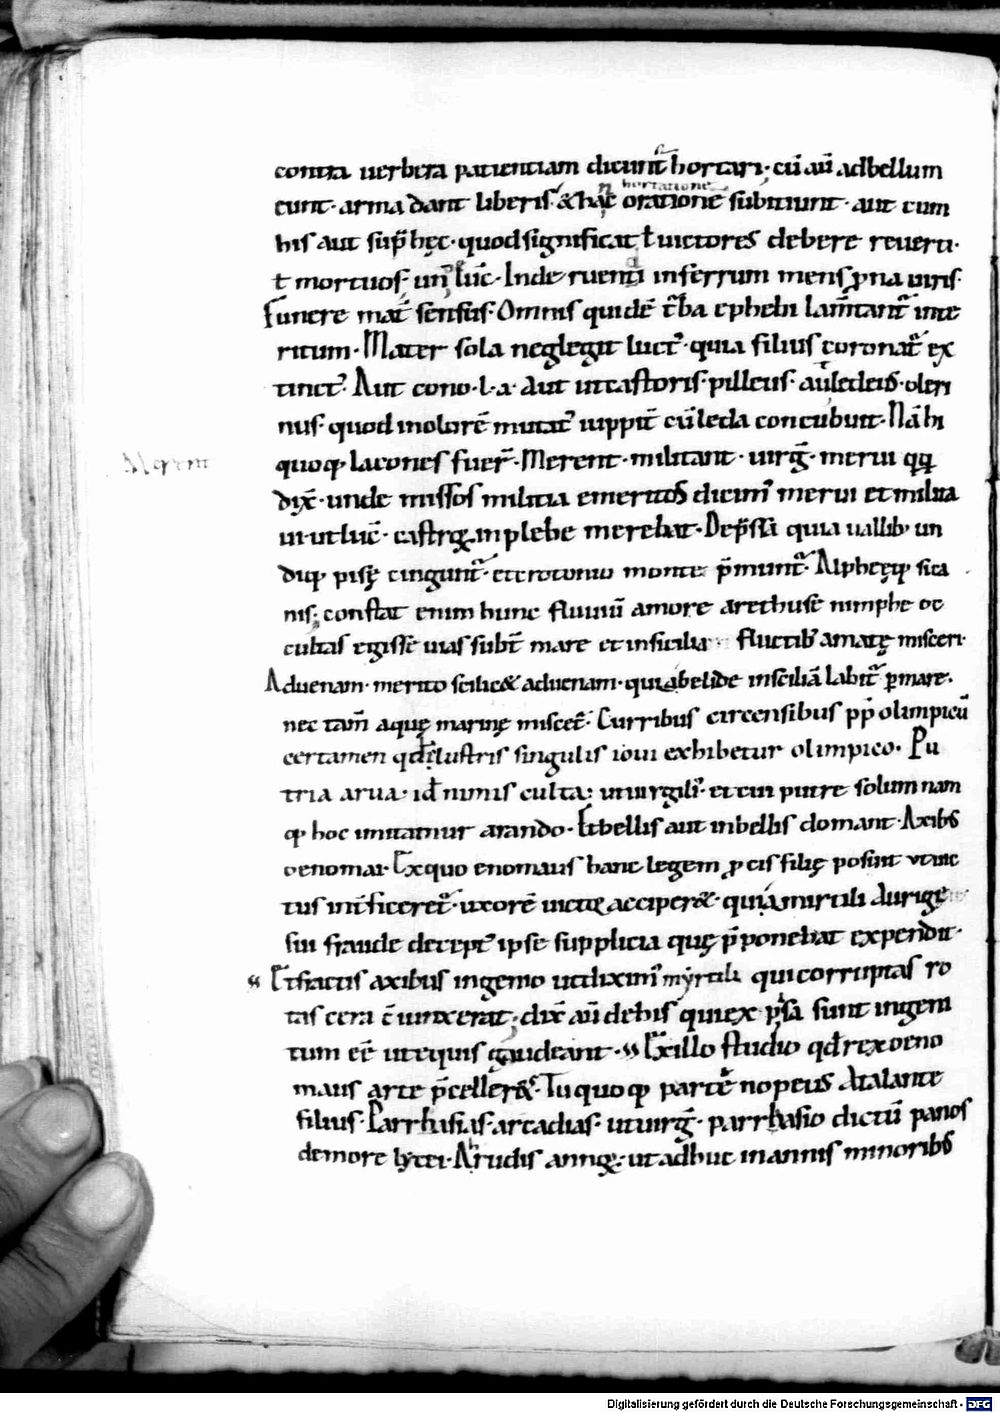 contra uerbera patientiam dicunt̄ hortari· cū aū adbellum
hortatione
eunt· arma dant liberis· & hac̄ oratione subitiunt· aut cum
his aut sup̄ hęc· quod significat ł uictores debere reuerti·
ł mortuos· un̄ luc̄· Inde ruenti inferrum mens ꝓna uiris·
Funere mat̄ sensus· Omnis quidē t̄ba ephebi lam̄tant̄ inte
ritum· Mater sola neglegit luct᷒· quia filius coronat᷒ ex
tinct᷒· Aut cono·l·a· Aut ut castoris· pilleus· aū ledeis· olori
nus· quod inolorē mutat᷒ iuppit̄ cū leda concubuit· Nā hi
Merent
quoqꝫ lacones fuer̄· Merent· militant· uirḡ· merui
dix̄· unde missos militia emeritos dicim᷒ merui et milita
ui· ut luc̄· castrisqꝫ in plebe merebat· Dep̄ssa quia uallibꝫ un
diqꝫ pisę cingunt᷒· et crotonio monte p̄munt᷒· Alpheęqꝫ sica
nis; constat enim hunc fluuiū amore arethuse nimphe oc
cultas egisse uias subt̄ mare et insicilia fluctibꝫ amatę misceri·
Aduenam· merito scilic& aduenam· quia abelide insciliā labit᷒ ꝑ mare·
nec tam̄ aquę marinę miscet᷒· Curribus circensibus pp̄ olimpicū
certamen qđ lustris singulis ioui exhibetur olimpico· Pu
tria arua· iđ nimis culta; ut uirgili᷒· et cui putre solum nam
qꝫ hoc imitamur arando· Et bellis aut inbellis domant· Axibꝫ
oenomai· Ex quo enomaus hanc legem ꝓcis filię posuit ut uic
tus int̄ficeret᷒· uxorē uictꝫ acciper&· quia mirtili aurige
sui fraude decept᷒ ipse supplicia quę p̄ponebat expendit·
Et fractis axibus ingemo ut dixim᷒ myrtili qui corruptas ro
tas cera c̄iunxerat; dix̄ aū dehis qui ex p̄sa sunt ingem
tum eē ut equis gaudeant· Exillo studio qđ rex oeno
maus arte p̄celler&· Tu quoqꝫ partenopeus Atalante
filius· Parrhasias· arcadias· ut uirḡ· parrhasio dictū panos
demore lycei· A rudis annqꝫ· ut adhuc in annis minoribꝫ
Digitalisierung gefördert durch die Deutsche Forschungsgemeinschaft - DFG